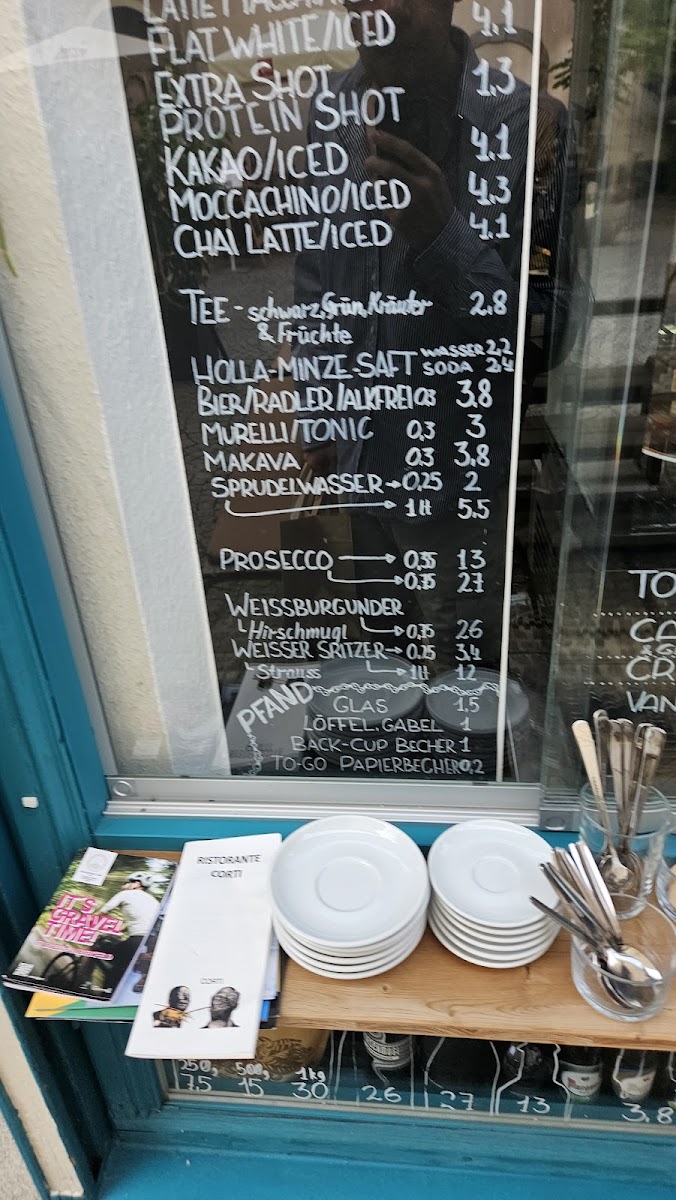 LATTE MACCHIATO
FLAT WHITE/ICED 4.1
EXTRA SHOT 1,3
PROTEIN SHOT
KAKAO/ICED 4.1
MOCCACHINO/ICED 4.3
CHAI LATTE/ICED 4.1
TEE - schwarz, Grün, Kräuter 2.8
& Früchte
HOLLA-MINZE-SAFT WASSER 2,2
SODA 2,4
BIER/RADLER/ALKFREI 0,3 3.8
MURELLI/TONIC 0,3 3
MAKAVA 0.3 3.8
SPRUDELWASSER → 0,25 2
1 lt 5.5
PROSECCO → 0,35 13
→ 0,75 27
WEISSBURGUNDER
Hirschmugl → 0,75 26
WEISSER SPRITZER → 0.25 3,4
Strauss → 1 lt 12
PFAND
GLAS 1,5
LÖFFEL, GABEL 1
BACK-CUP BECHER 1
TO-GO PAPIERBECHER 0,2
TO
&
CR
VAN
IT'S
GRAVEL
TIME!
RISTORANTE
CORTI
CORTI
250g 500g 1kg
7.5 15 30 26 27 13 3,8